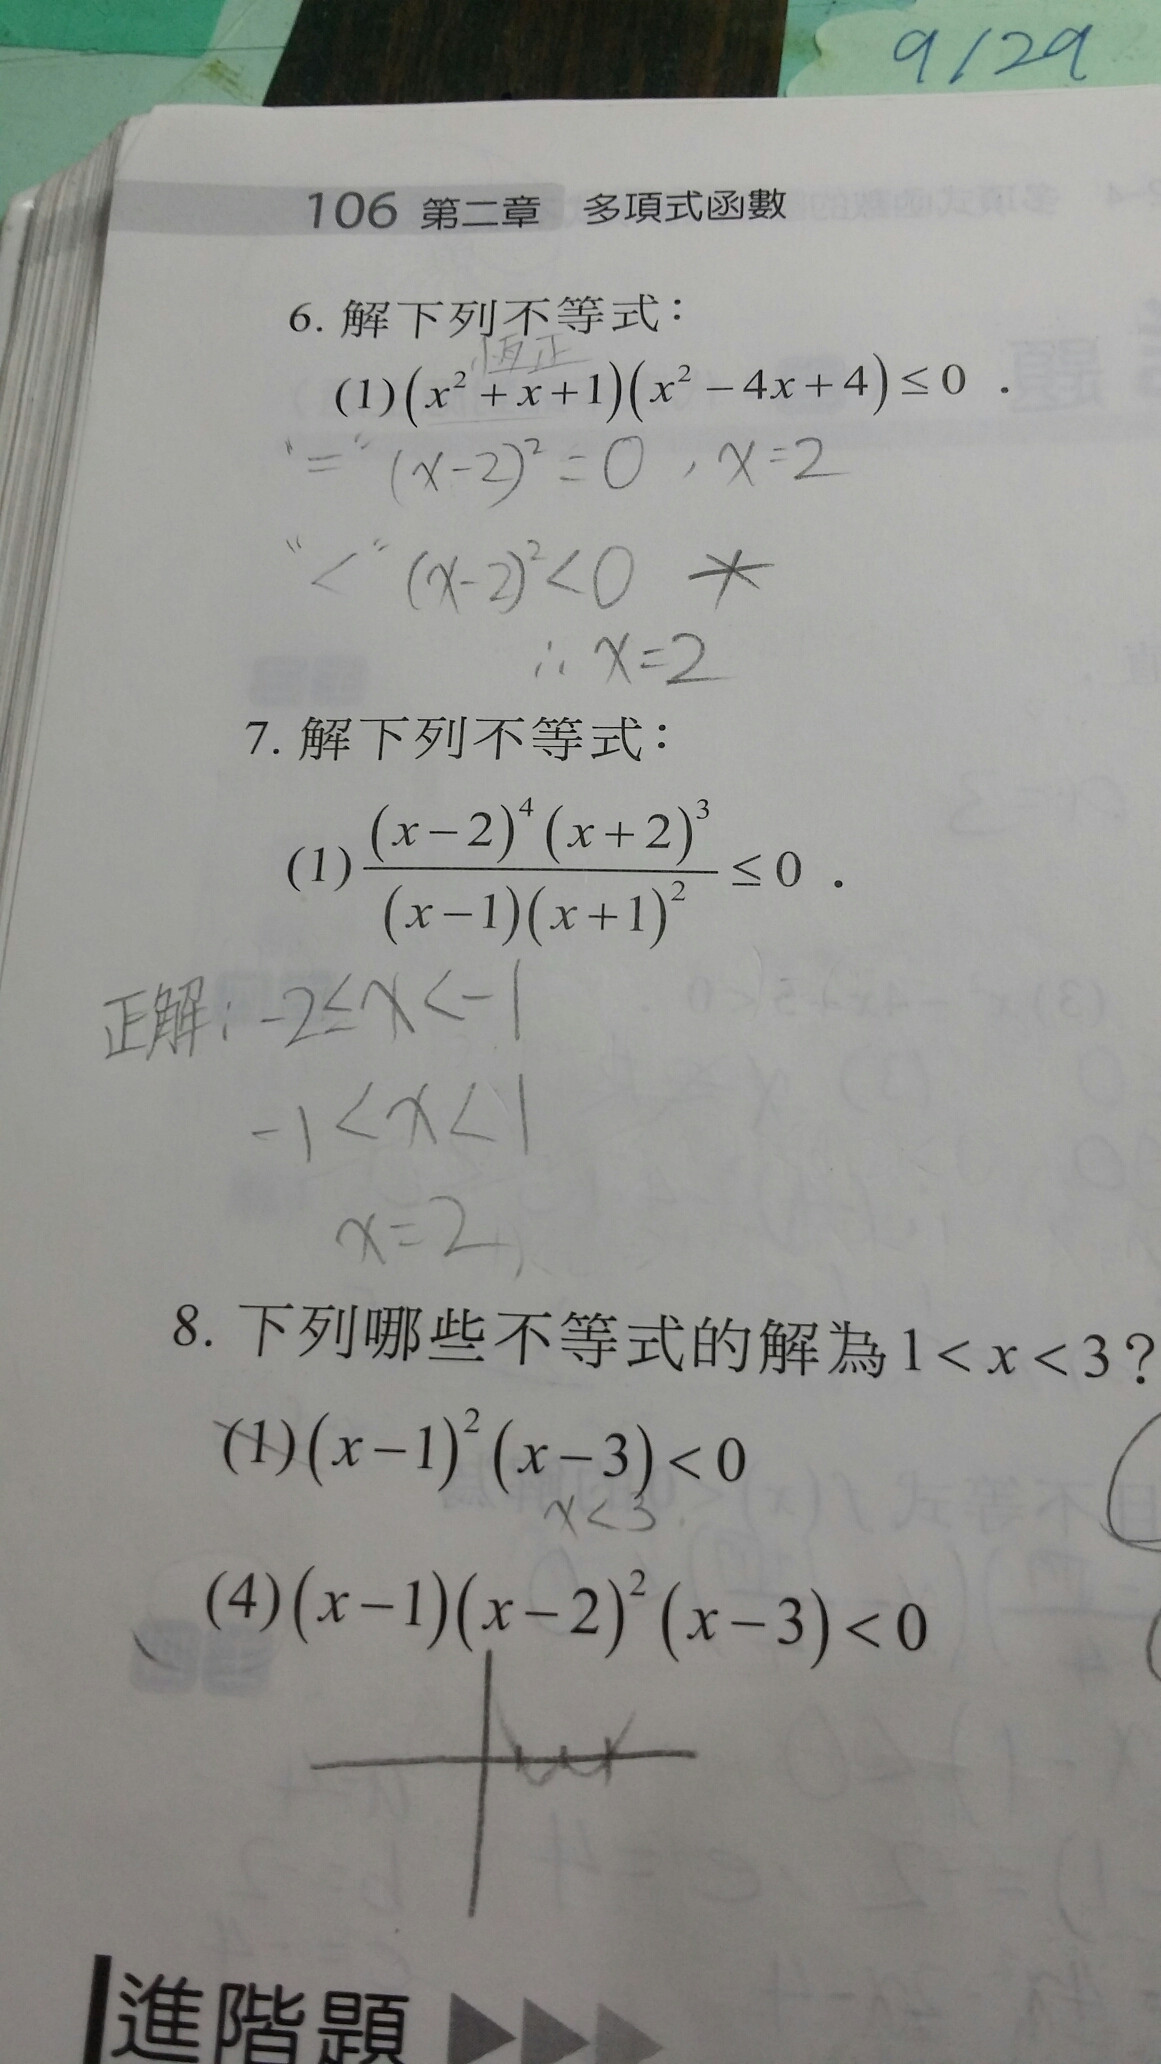 9/29
106 第二章 多項式函數
6. 解下列不等式：
恆正
(1)(x²+x+1)(x²−4x+4)≤0．
"=" (x-2)²=0，x=2
"<" (x-2)²<0
∴ x=2
7. 解下列不等式：
(1) (x−2)⁴(x+2)³ / (x−1)(x+1)² ≤0．
正解：-2≤x<-1
-1<x<1
x=2
8. 下列哪些不等式的解為1<x<3？
(1)(x−1)²(x−3)<0
x<3
(4)(x−1)(x−2)²(x−3)<0
進階題